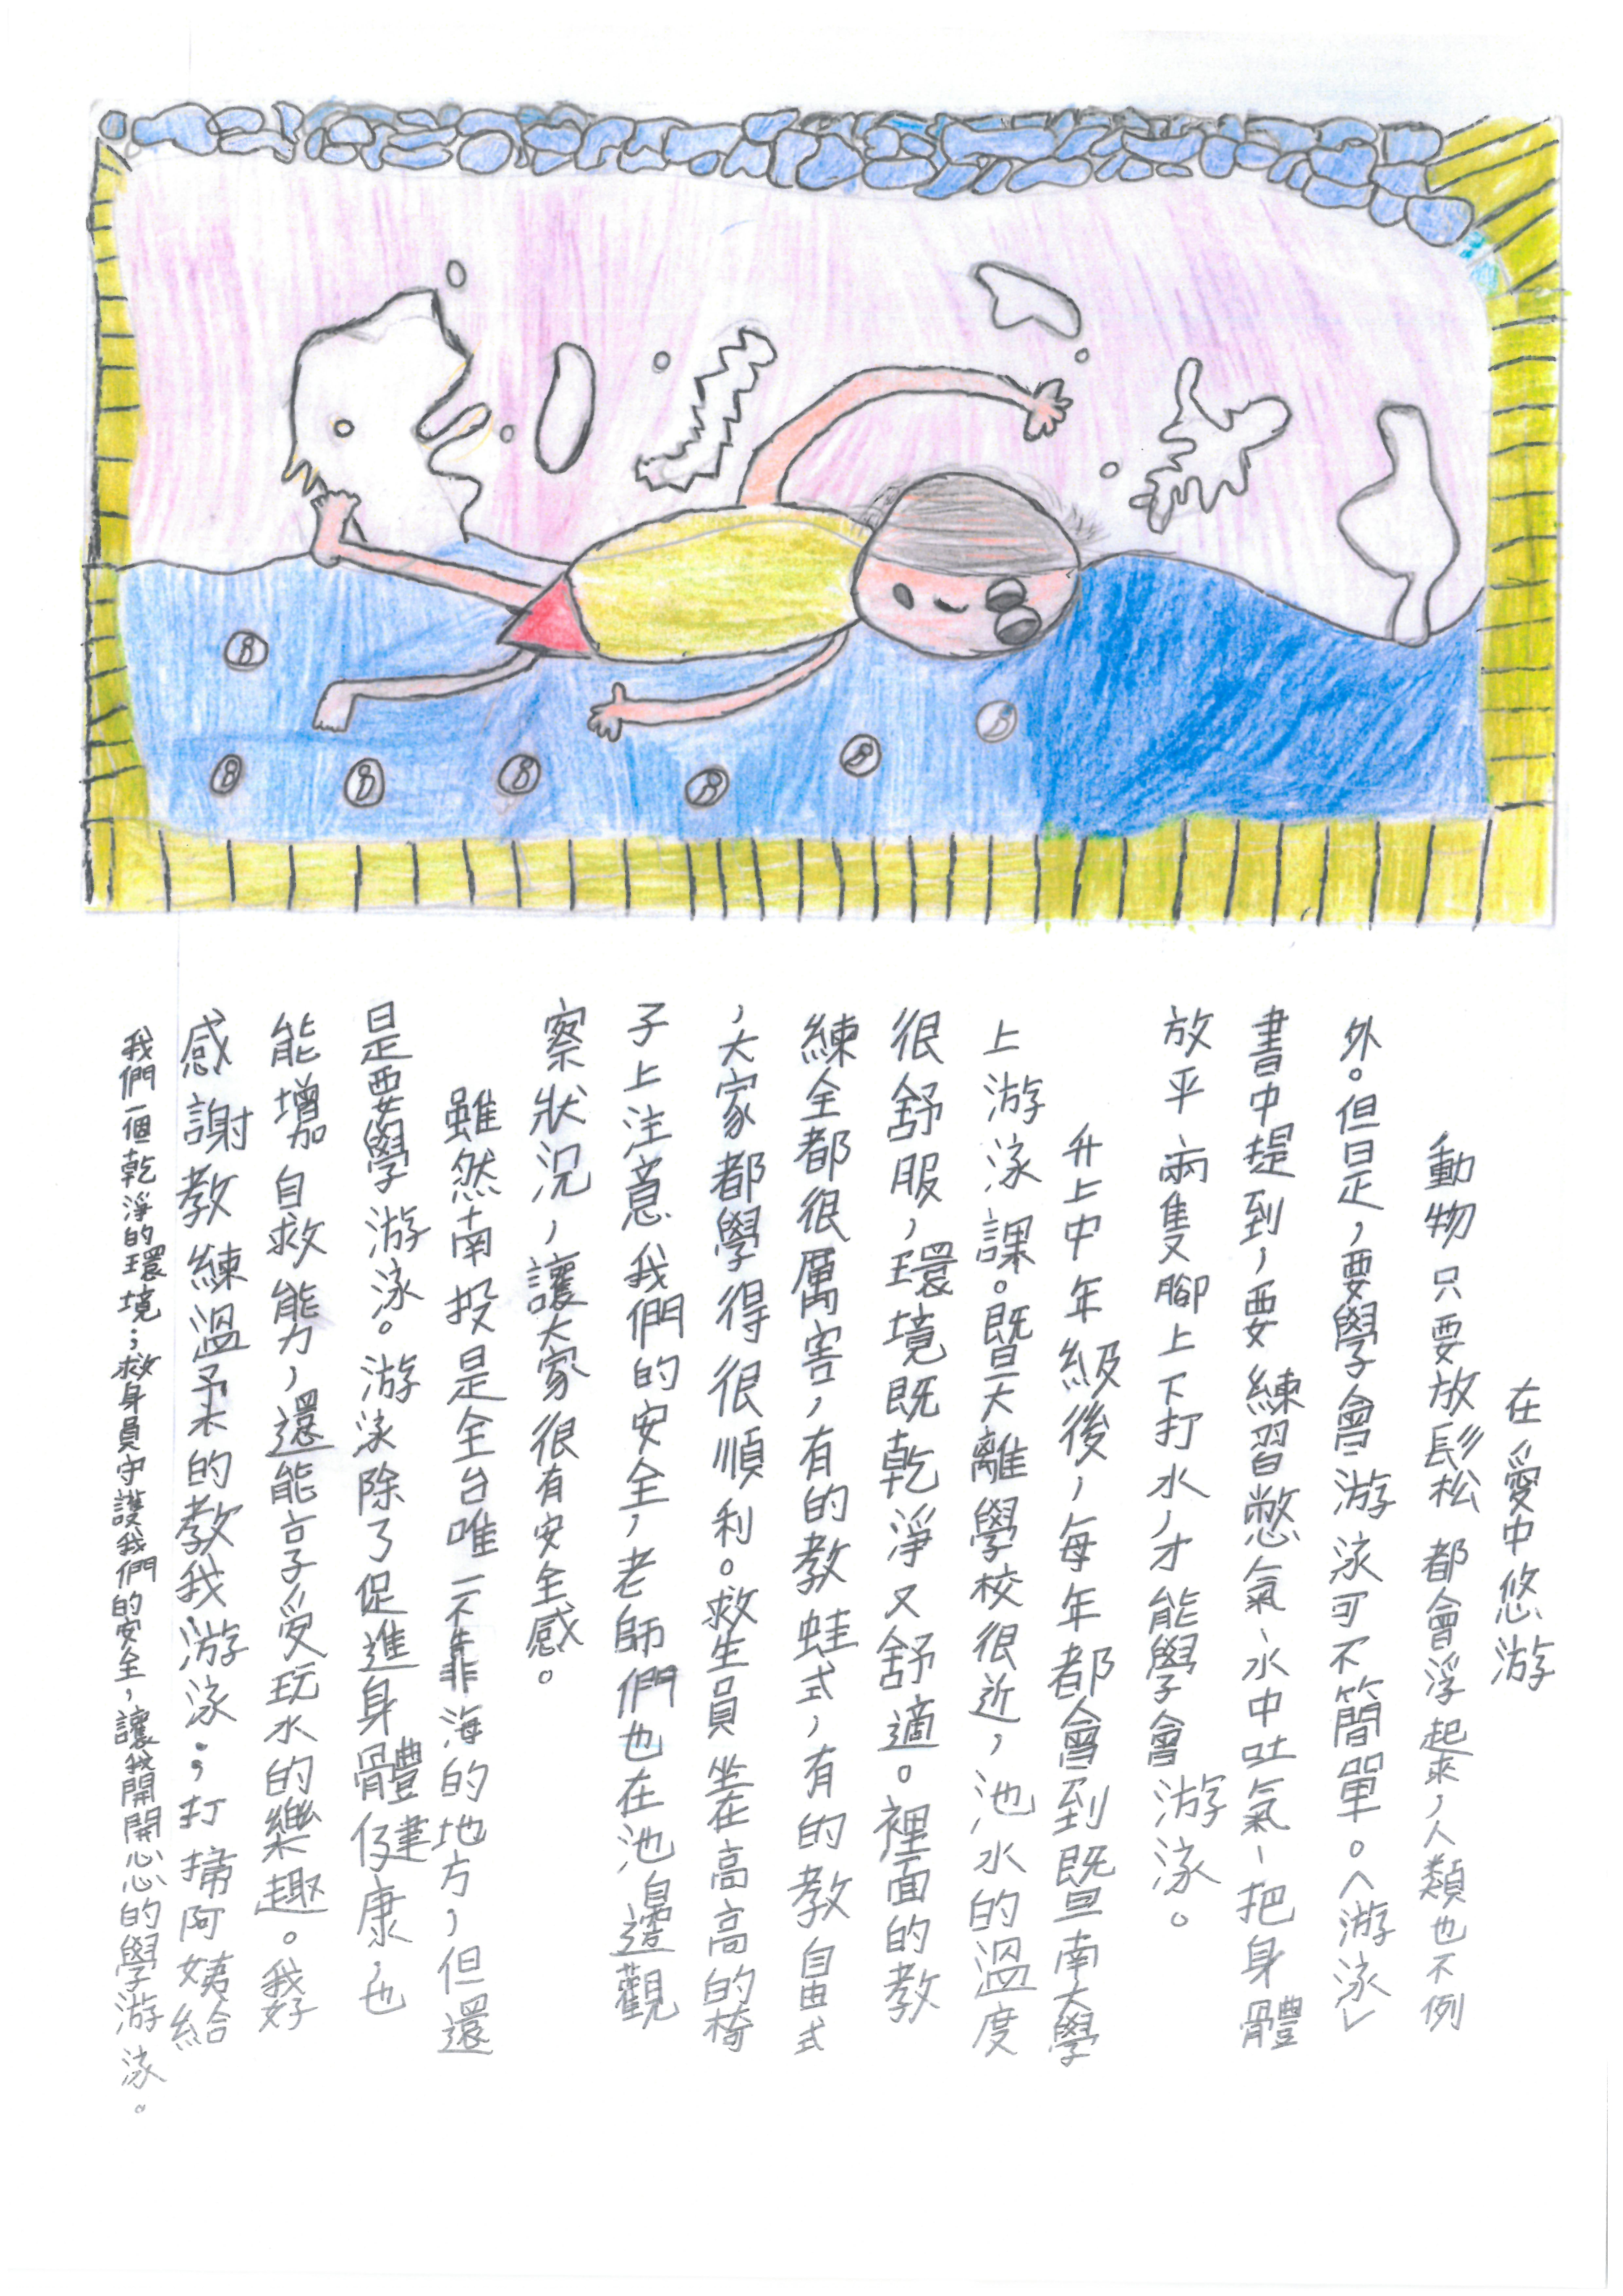 在愛中悠游
動物只要放鬆都會浮起來，人類也不例
外。但是，要學會游泳可不簡單。<游泳>
書中提到，要練習憋氣、水中吐氣、把身體
放平兩隻腳上下打水，才能學會游泳。
升上中年級後，每年都會到暨南大學
上游泳課。暨大離學校很近，池水的溫度
很舒服，環境既乾淨又舒適。裡面的教
練全都很厲害，有的教蛙式，有的教自由式
，大家都學得很順利。救生員坐在高高的椅
子上注意我們的安全，老師們也在池邊觀
察狀況，讓大家很有安全感。
雖然南投是全台唯一不靠海的地方，但還
是要學游泳。游泳除了促進身體健康，也
能增加自救能力，還能享受玩水的樂趣。我好
感謝教練溫柔的教我游泳；打掃阿姨給
我們一個乾淨的環境；救身員守護我們的安全，讓我開開心心的學游泳。